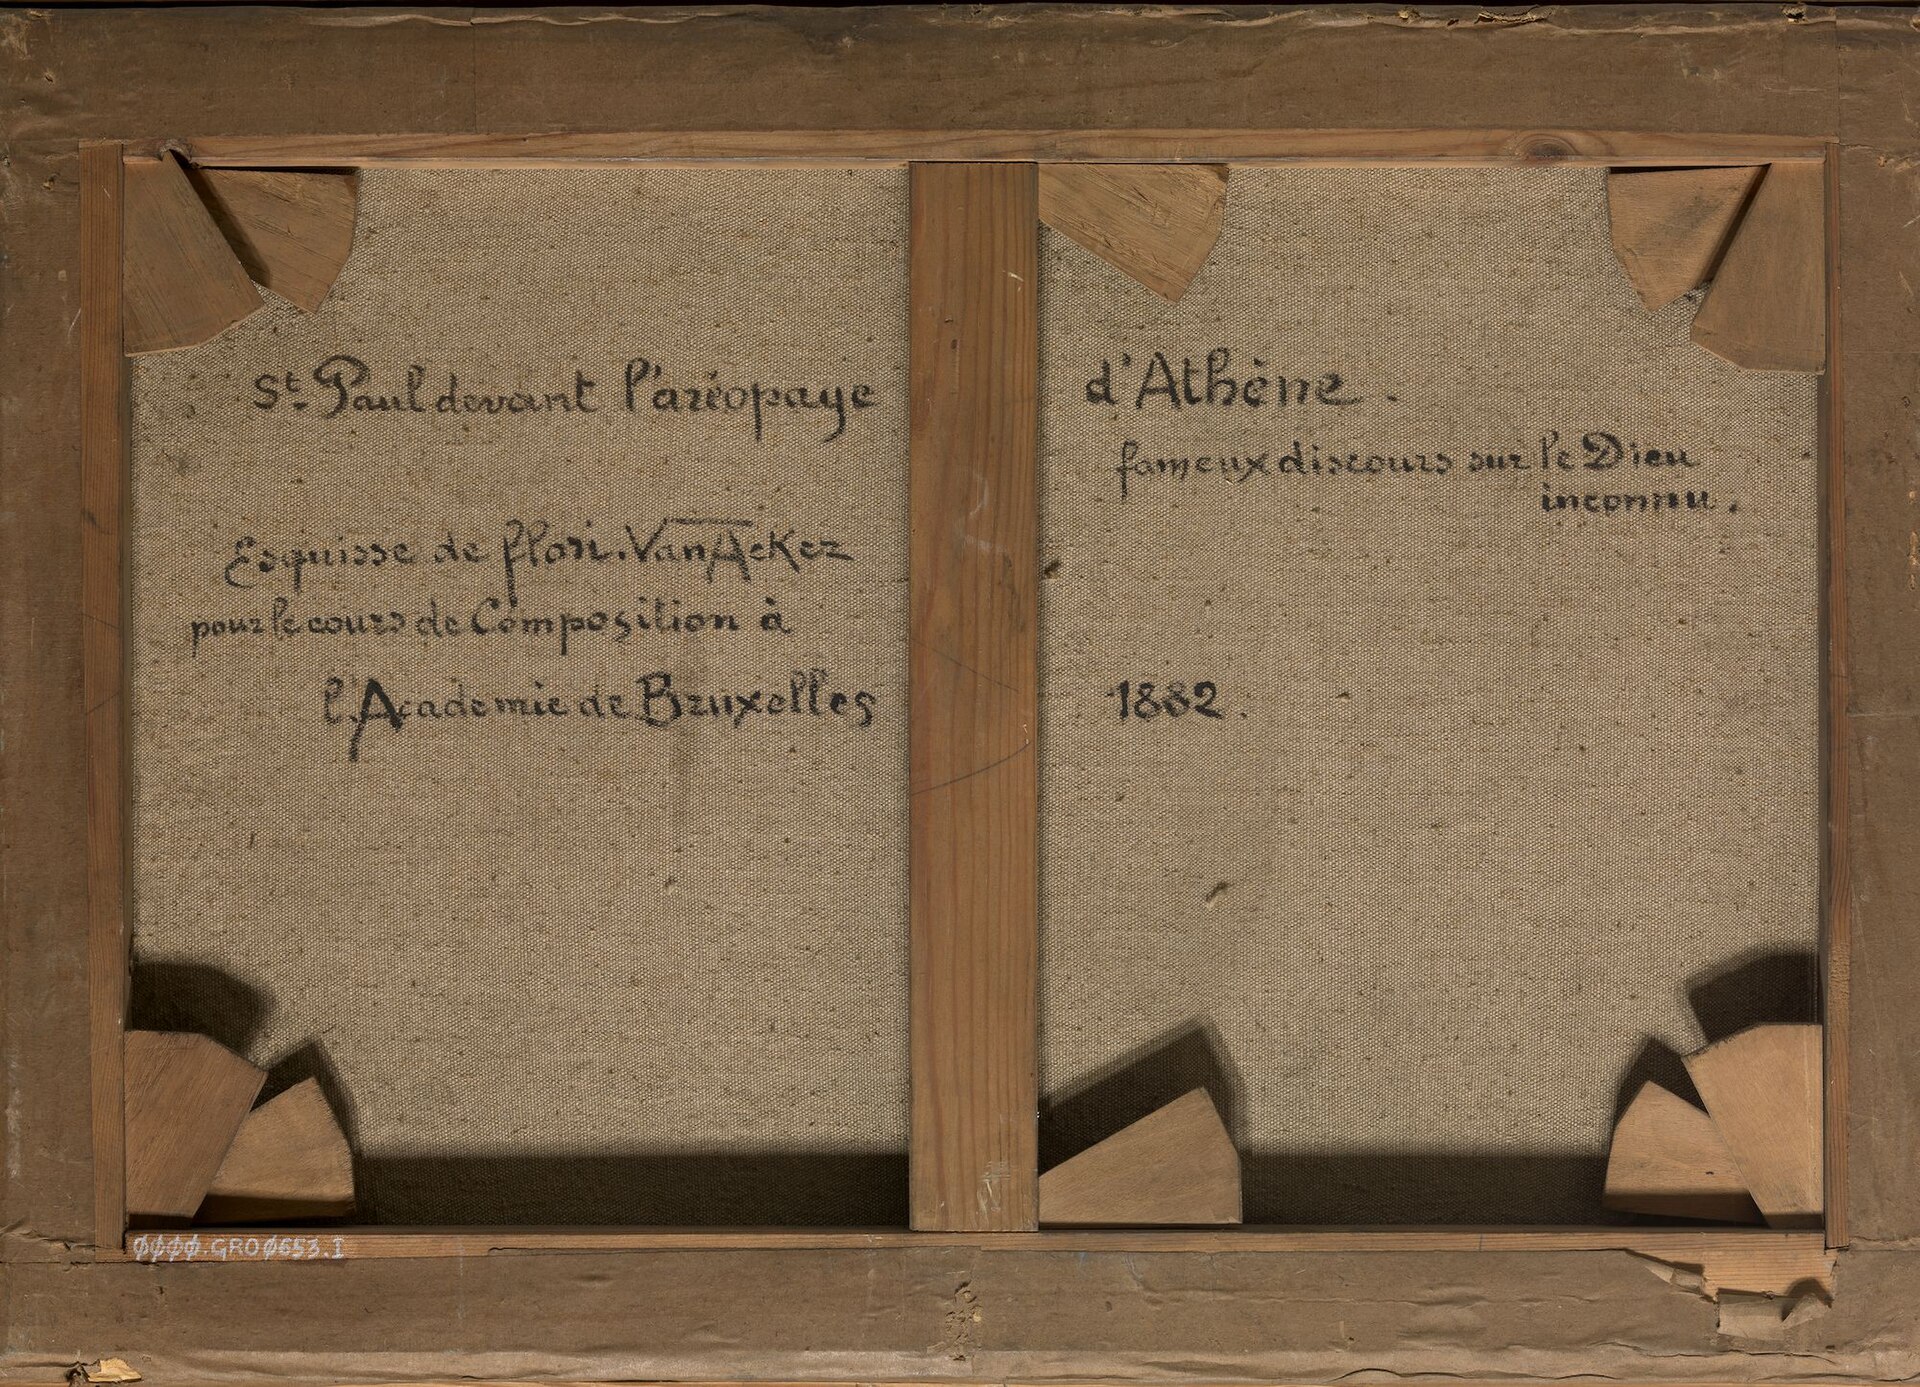 St. Paul devant l'aréopage d'Athène.
fameux discours sur le Dieu
inconnu.
Esquisse de flori. Van Acker
pour le cours de Composition à
l'Academie de Bruxelles 1882.
0000.GRO0653.I